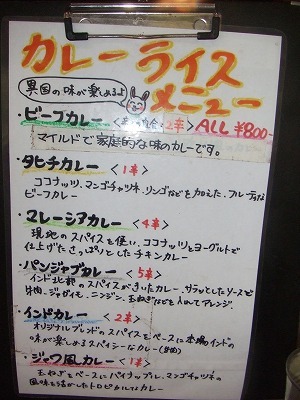 カレーライス
メニュー
異国の味が楽しめるよ
・ビーフカレー <2辛> ALL ¥800-
マイルドで家庭的な味のカレーです。
・タヒチカレー <1辛>
ココナッツ、マンゴチャツネ、リンゴなどを加えた、フルーティな
ビーフカレー
・マレーシアカレー <4辛>
現地のスパイスを使い、ココナッツとヨーグルトで
仕上げたさっぱりとしたチキンカレー
・パンジャブカレー <5辛>
インド北部のスパイスがきいたカレー。サラッとしたソースと
牛肉、ジャガイモ、ニンジン、玉ねぎなどを入れてアレンジ
・インドカレー <2辛>
オリジナルブレンドのスパイスをベースに本場のインドの
味が楽しめるスパイシーなカレー(牛肉)
・ジャワ風カレー <1辛>
玉ねぎをベースにパイナップル、マンゴチャツネの
風味を活かしたトロピカルなカレー